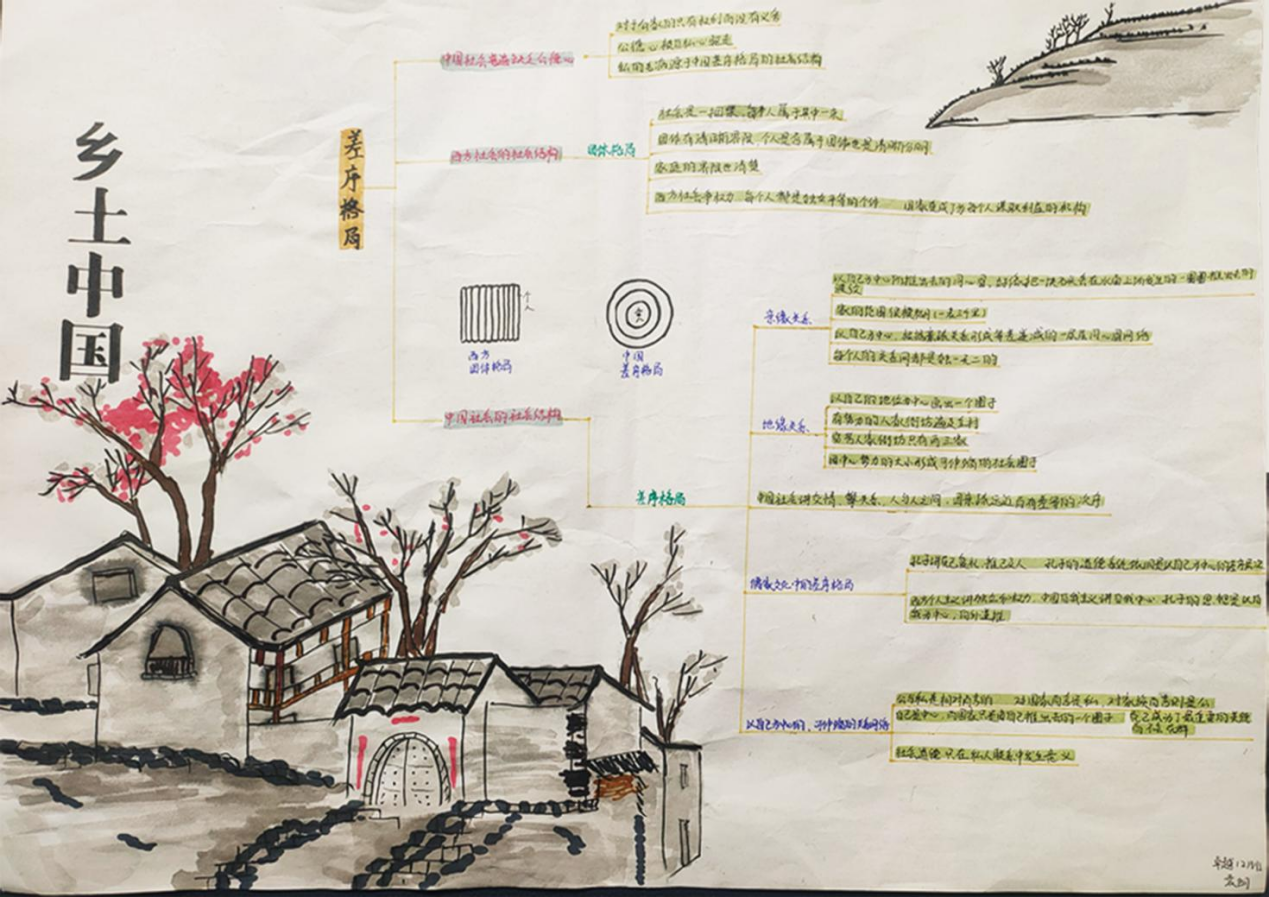 乡土中国
差序格局
中国社会普遍缺乏公德心
对于公家的只有权利而没有义务
公德心被自私心驱走
私的毛病源于中国差序格局的社会结构
西方社会的社会结构
团体格局
社会是一捆柴,每个人属于其中一束
团体有清晰的界限,个人是否属于团体也是清晰分明的
家庭的界限也清楚
西方社会争权力 每个人都是独立平等的个体 国家变成了为每个人谋取利益的机构
个人
西方
团体格局
家
中国
差序格局
中国社会的社会结构
差序格局
亲缘关系
以自己为中心所推出去的同心圆,好像把一块石头丢在水面上所发生的一圈圈推出去的
波纹
家的范围很模糊(一表三千里)
以自己为中心,把被亲疏关系形成等差递减的一层层同心圆网络
每个人的关系网都是独一无二的
地缘关系
以自己的地位为中心画出一个圈子
有势力的人家街坊遍及全村
穷苦人家街坊只有两三家
因中心势力的大小形成了伸缩的社会圈子
中国社会讲交情、攀关系、人与人之间,因亲疏远近而有差等的次序
儒家文化中的差序格局
孔子讲克己复礼,推己及人 孔子的道德系统依旧是以自己为中心的差序层次
西方个人主义讲独立争权力,中国自我主义讲自我中心,孔子的思想是以自
我为中心,向外差推
以自己为中心的,可伸缩的关系网络
公与私是相对而言的 对国家而言是私,对家族而言则是公
自己是中心,而国家只是由自己推出去的一个圈子 克己成为了最重要的美德
而不是克群
社会道德只在私人联系中发生意义
卓越12班